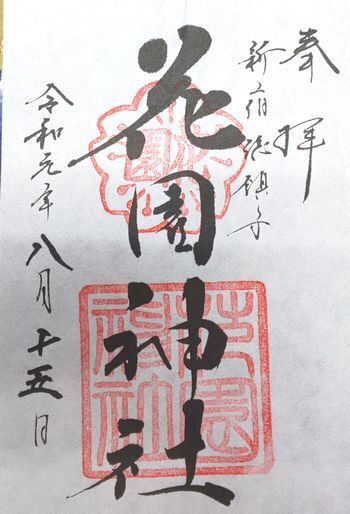 奉拝
新宿総鎮守
花園神社
令和元年八月十五日
花園神社